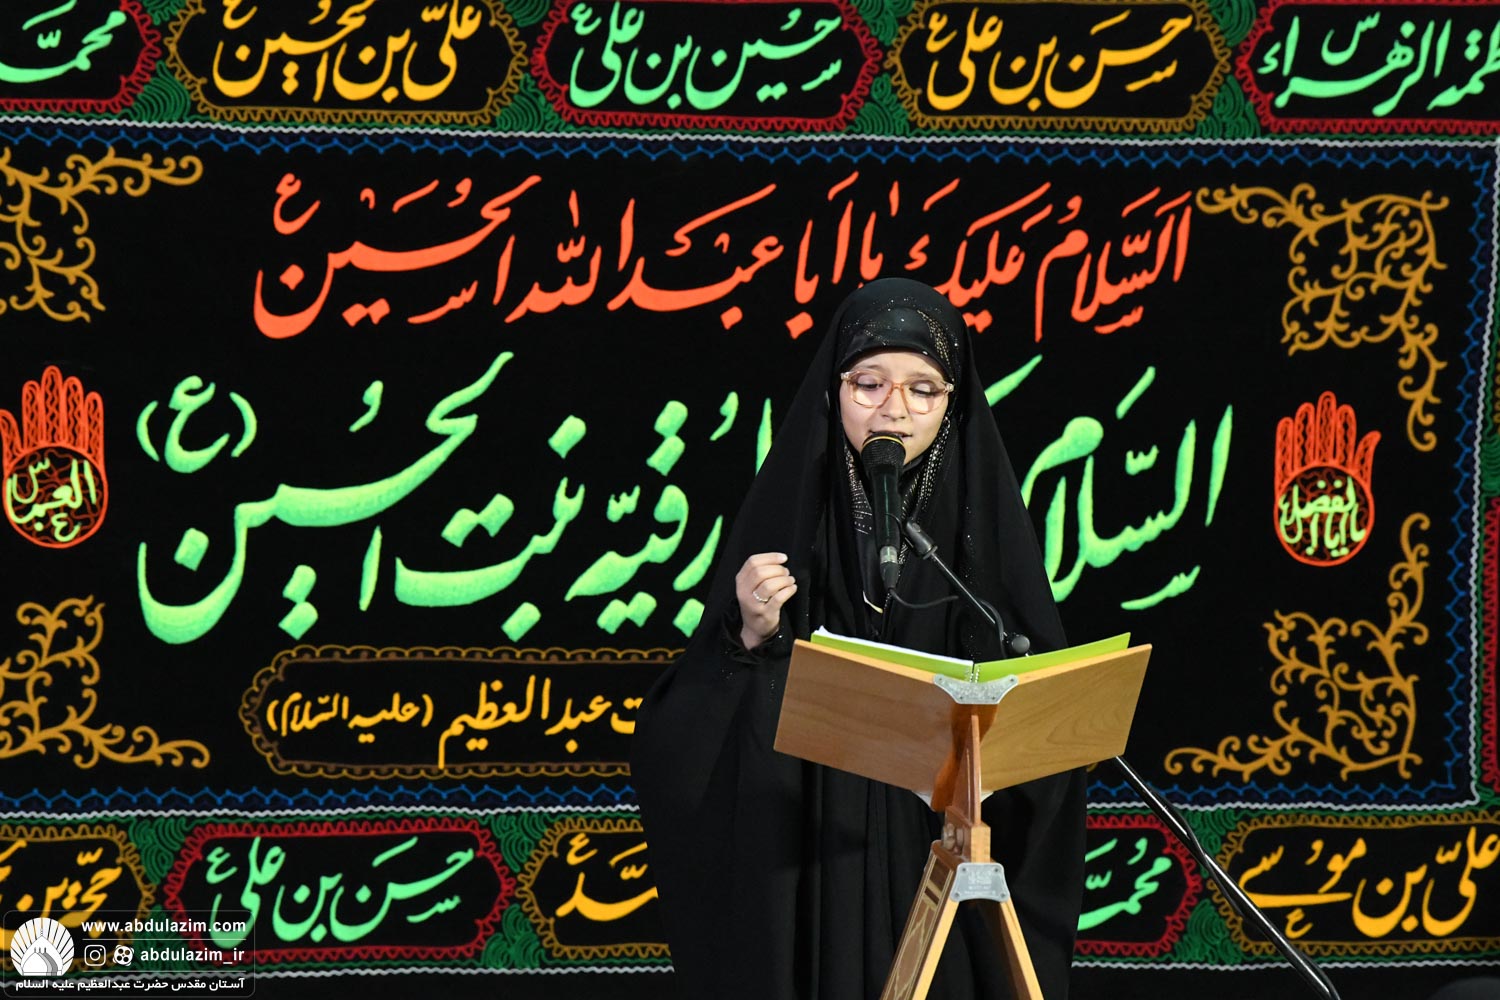 محمّد
علیّ بن الحسین ع
حسین بن علی ع
حسن بن علی ع
طمه الزهراء س
اَلسَّلامُ عَلَیکَ یا اَبا عَبْدالله الحسین ع
السّلام
رقیّه بنت الحسین (ع)
العباس ع
یا اباالفضل
ت عبدالعظیم (علیه السّلام)
حجّة بن
حسن بن علی ع
محمّ
علیّ بن موسی ع
www.abdulazim.com
abdulazim_ir
آستان مقدس حضرت عبدالعظیم علیه السلام